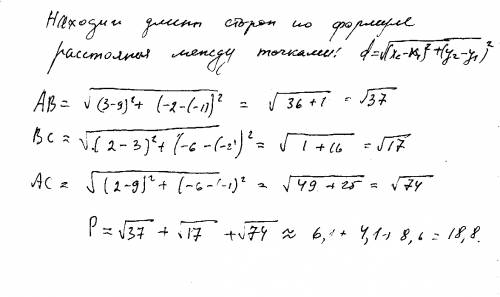 Находим длины сторон по формуле
расстояния между точками: d=√(x₂-x₁)²+(y₂-y₁)²
AB= √(3-9)²+(-2-(-1))² = √36+1 = √37
BC= √(2-3)²+(-6-(-2))² = √1+16 = √17
AC= √(2-9)²+(-6-(-1))² = √49+25 = √74
P=√37+√17+√74≈6,1+4,1+8,6=18,8.